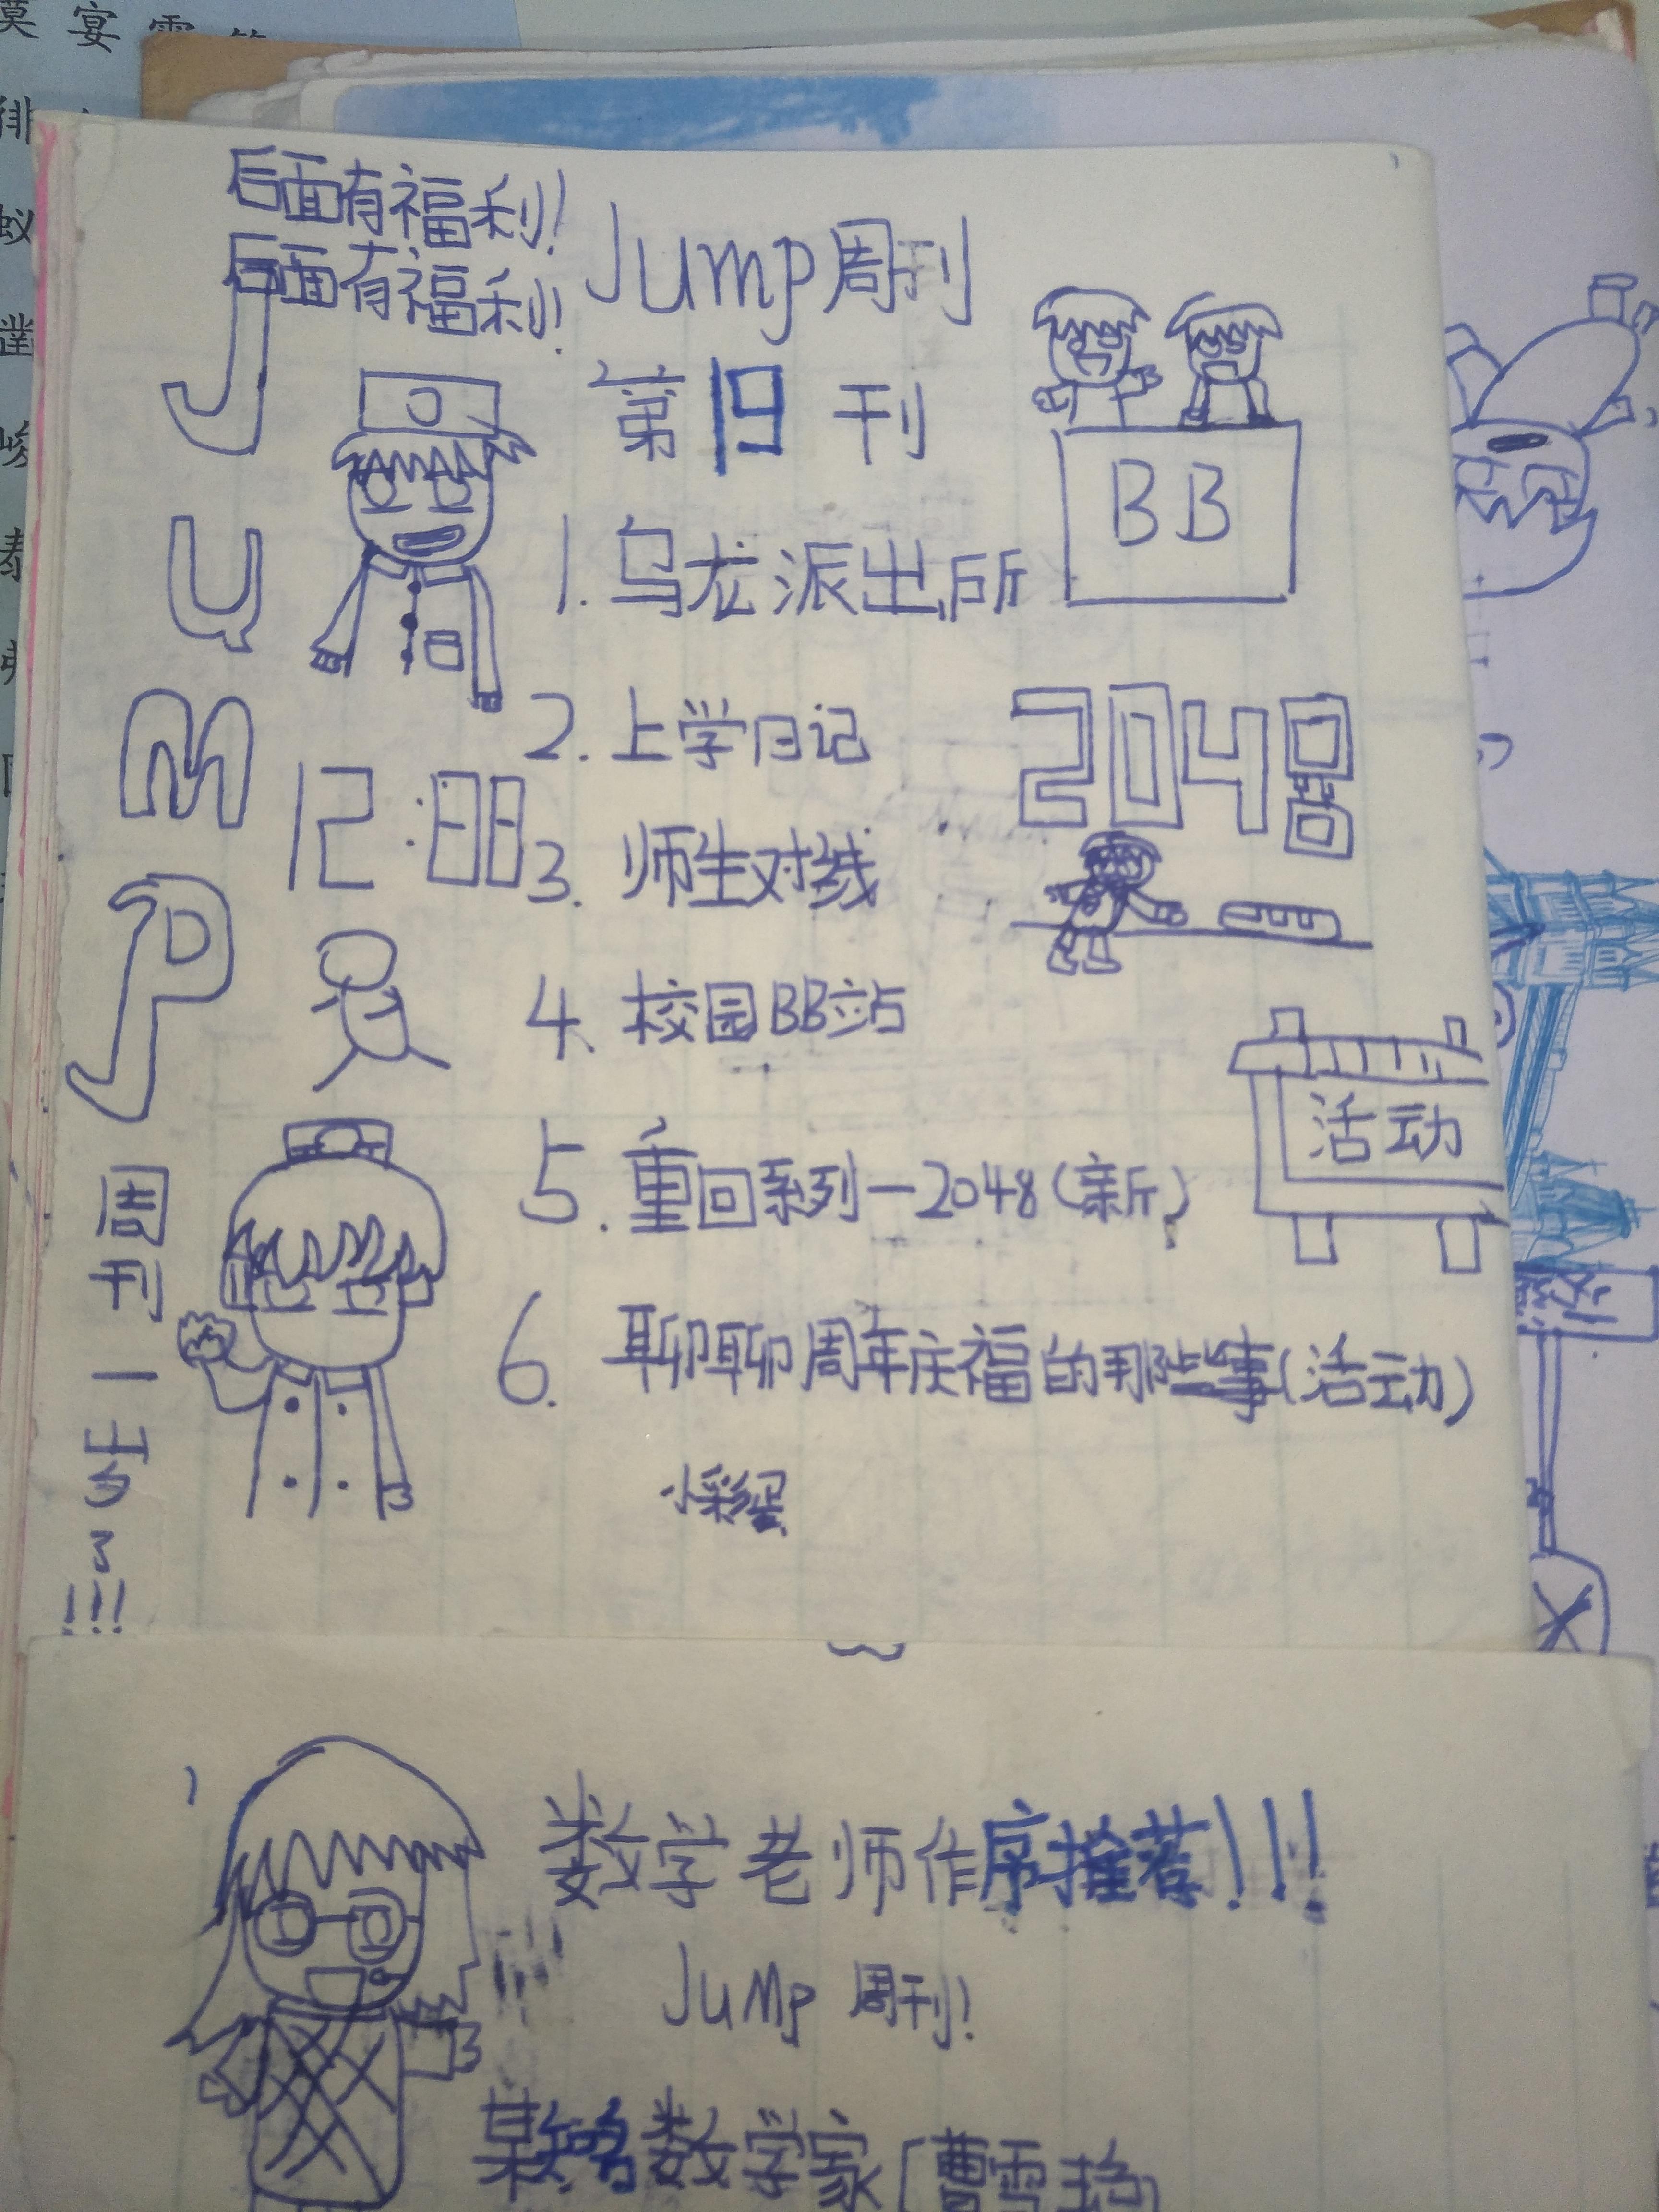 后面有福利!
后面有福利!
Jump周刊
第19刊
JUMP周刊一生岁了!!!
BB
1.乌龙派出所
2.上学日记
2048
12:88
3.师生对线
4.校园BB站
活动
5.重回系列—2048(新)
6.聊聊周年庆福的那些事(活动)
小彩蛋
数学老师作序推荐!!!
JuMp 周刊!
某知名数学家[曹雪
莫宴霄
徘
蚁
凿
峻